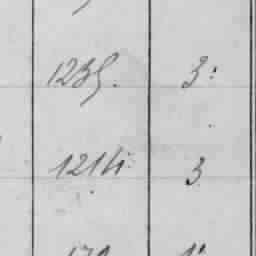 1235. 3:
1214 3